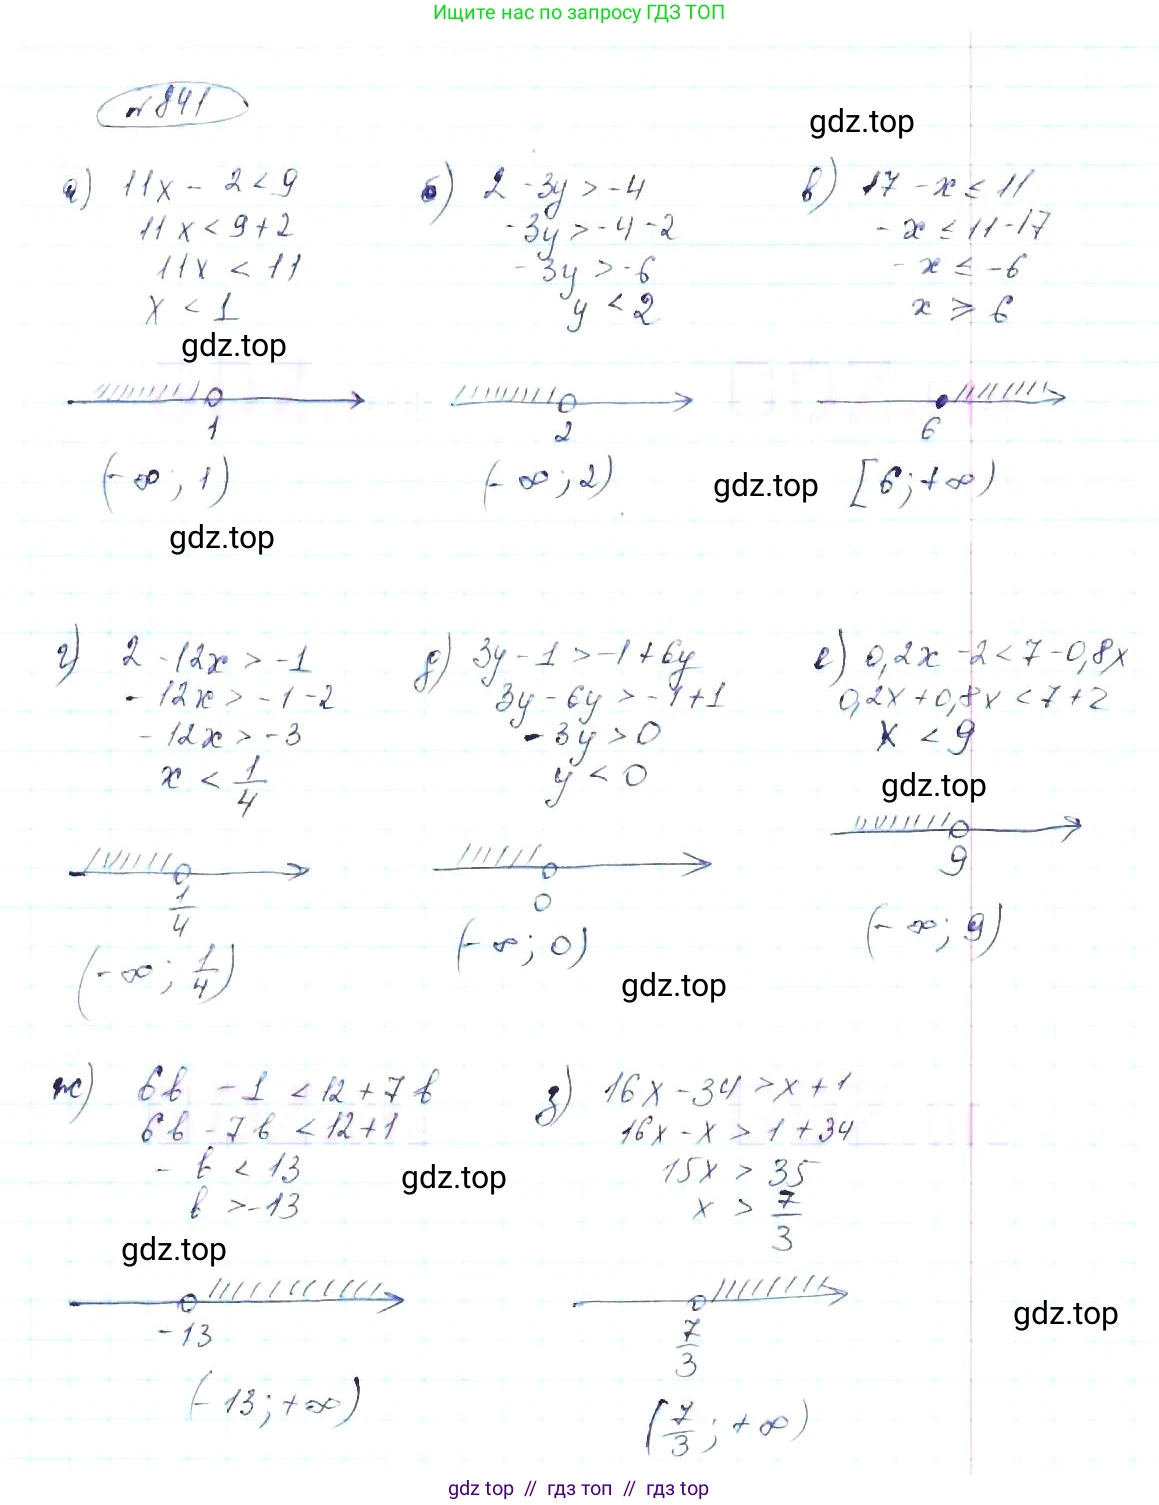 Ищите нас по запросу ГДЗ ТОП
№841
gdz.top
а) 11x - 2 < 9
11x < 9 + 2
11x < 11
x < 1
gdz.top
1
(-∞; 1)
gdz.top
б) 2 - 3y > -4
-3y > -4 - 2
-3y > -6
y < 2
2
(-∞; 2)
gdz.top
в) 17 - x ≤ 11
-x ≤ 11 - 17
-x ≤ -6
x ≥ 6
6
[6; +∞)
г) 2 - 12x > -1
-12x > -1 - 2
-12x > -3
x < 1/4
1/4
(-∞; 1/4)
д) 3y - 1 > -1 + 6y
3y - 6y > -1 + 1
-3y > 0
y < 0
0
(-∞; 0)
gdz.top
е) 0,2x - 2 < 7 - 0,8x
0,2x + 0,8x < 7 + 2
x < 9
gdz.top
9
(-∞; 9)
ж) 6в - 1 < 12 + 7в
6в - 7в < 12 + 1
-в < 13
в > -13
gdz.top
gdz.top
-13
(-13; +∞)
з) 16x - 34 > x + 1
16x - x > 1 + 34
15x > 35
x > 7/3
7/3
(7/3; +∞)
gdz.top
gdz top // гдз топ // gdz top